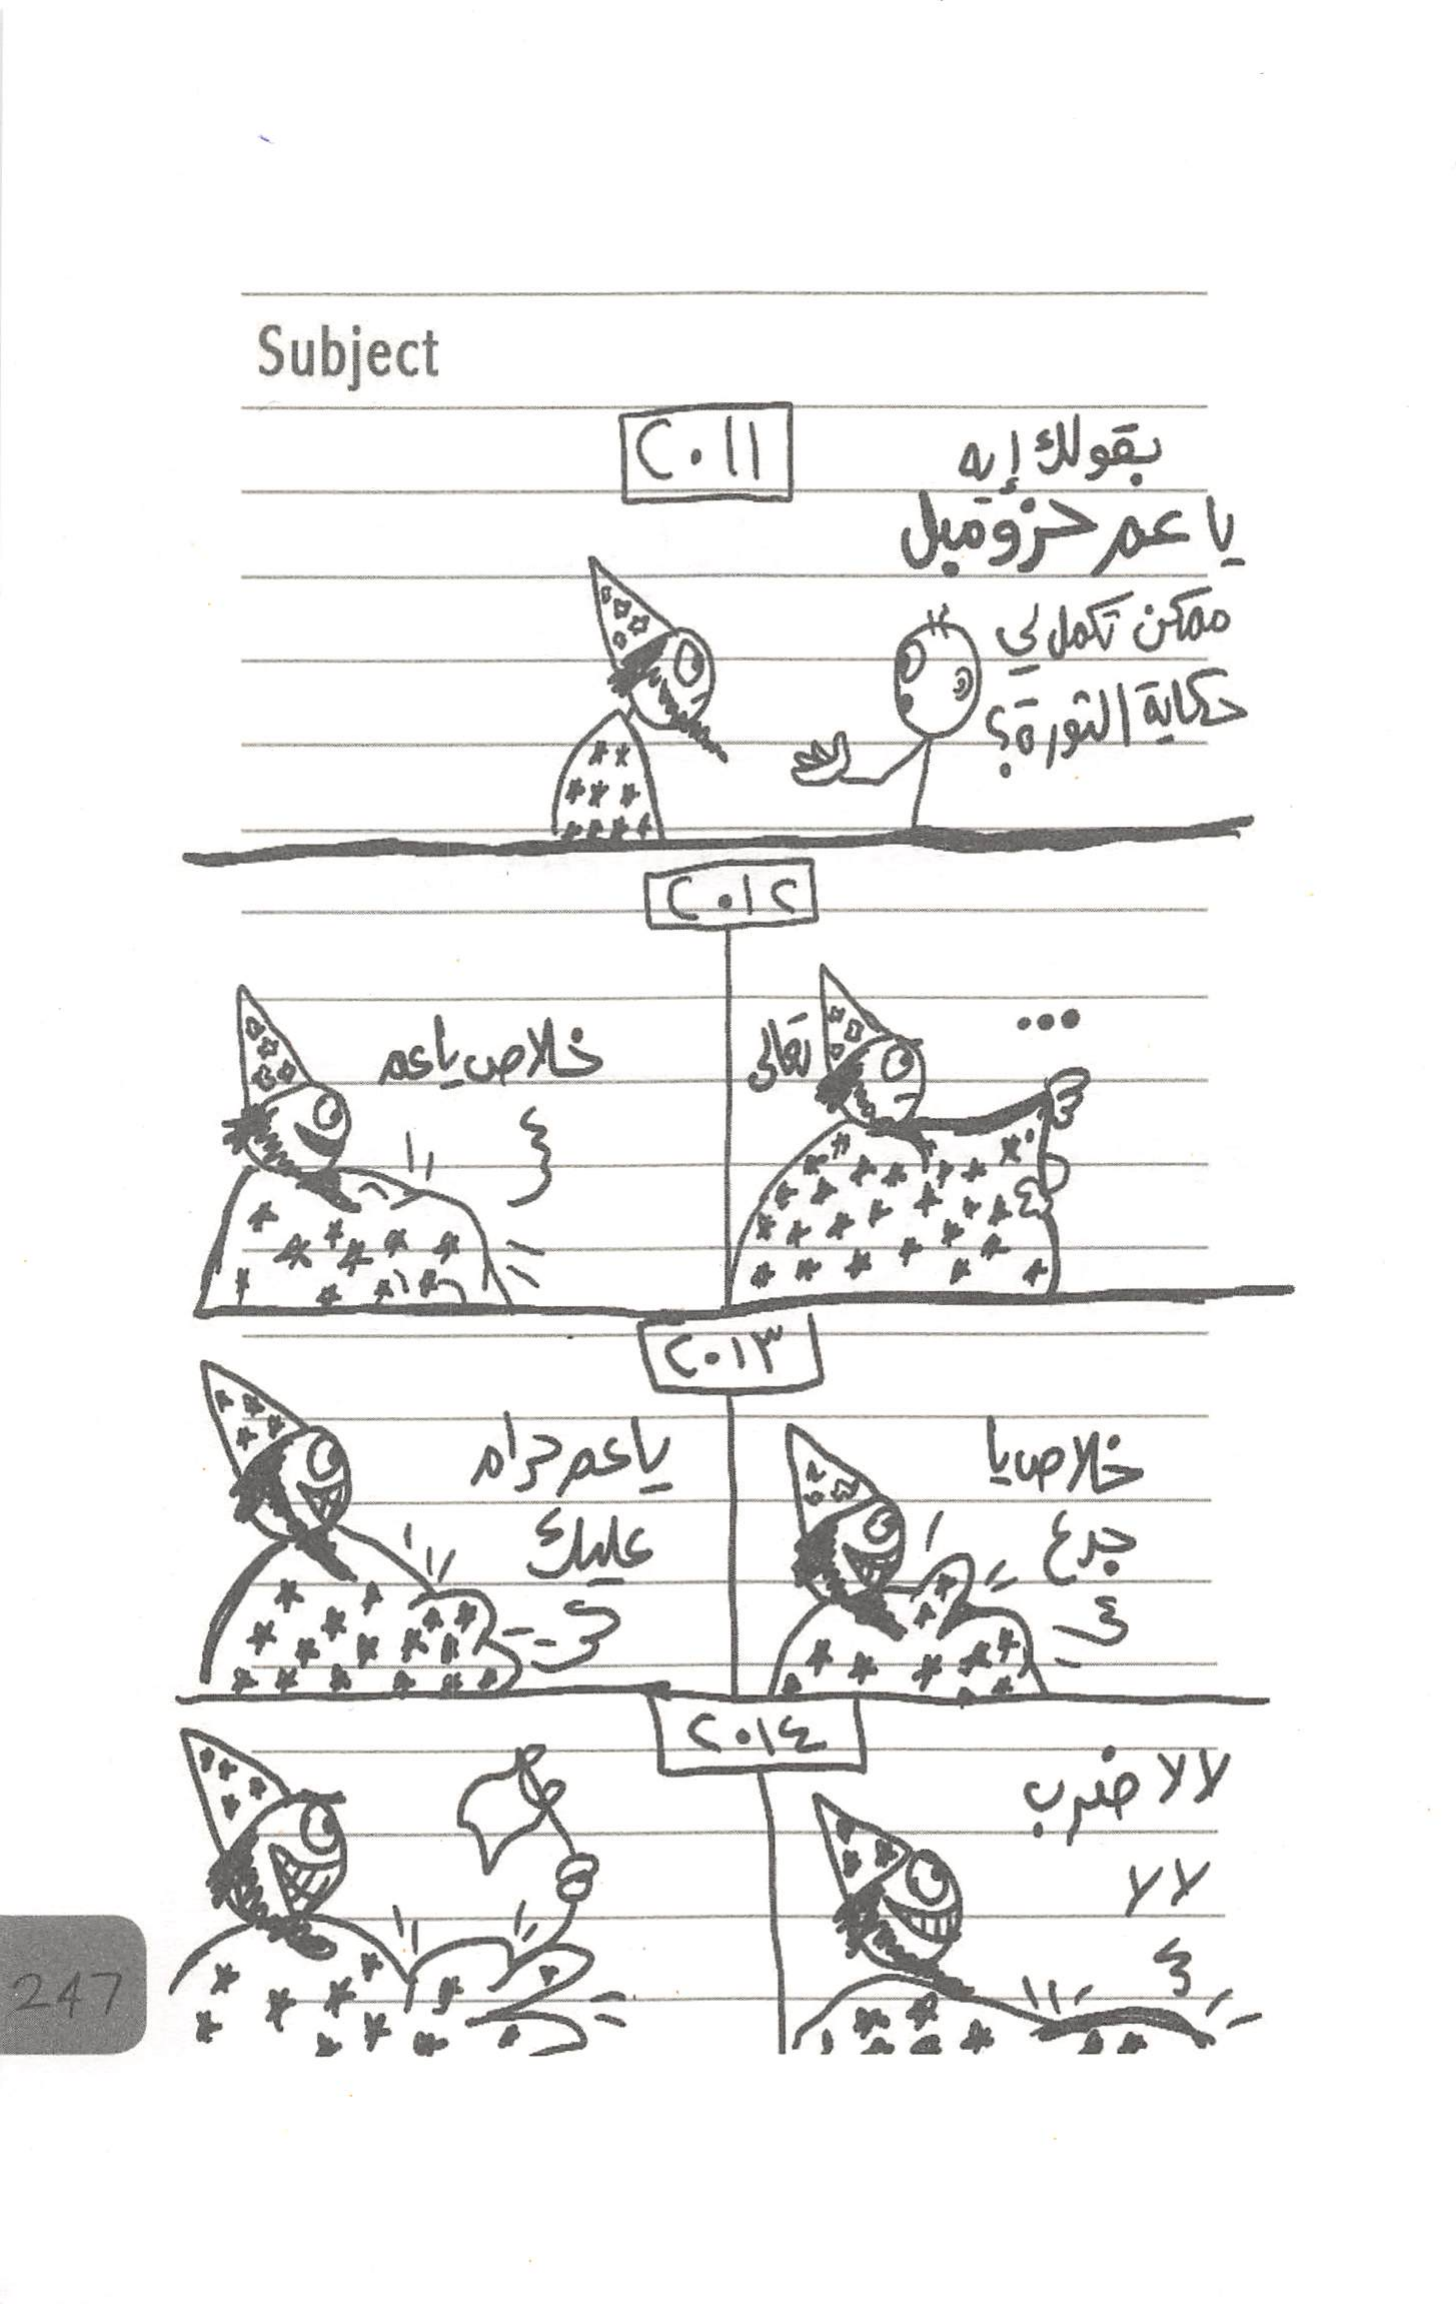 Subject
٢٠١١
بقولك إيه
يا عم حزومبل
ممكن تكمل لي
حكاية الثورة؟
٢٠١٢
...
تعالى
خلاص يا عم
٢٠١٣
خلاص يا
جدع
يا عم حرام
عليك
٢٠١٤
لا لا ضرب
لا لا
247